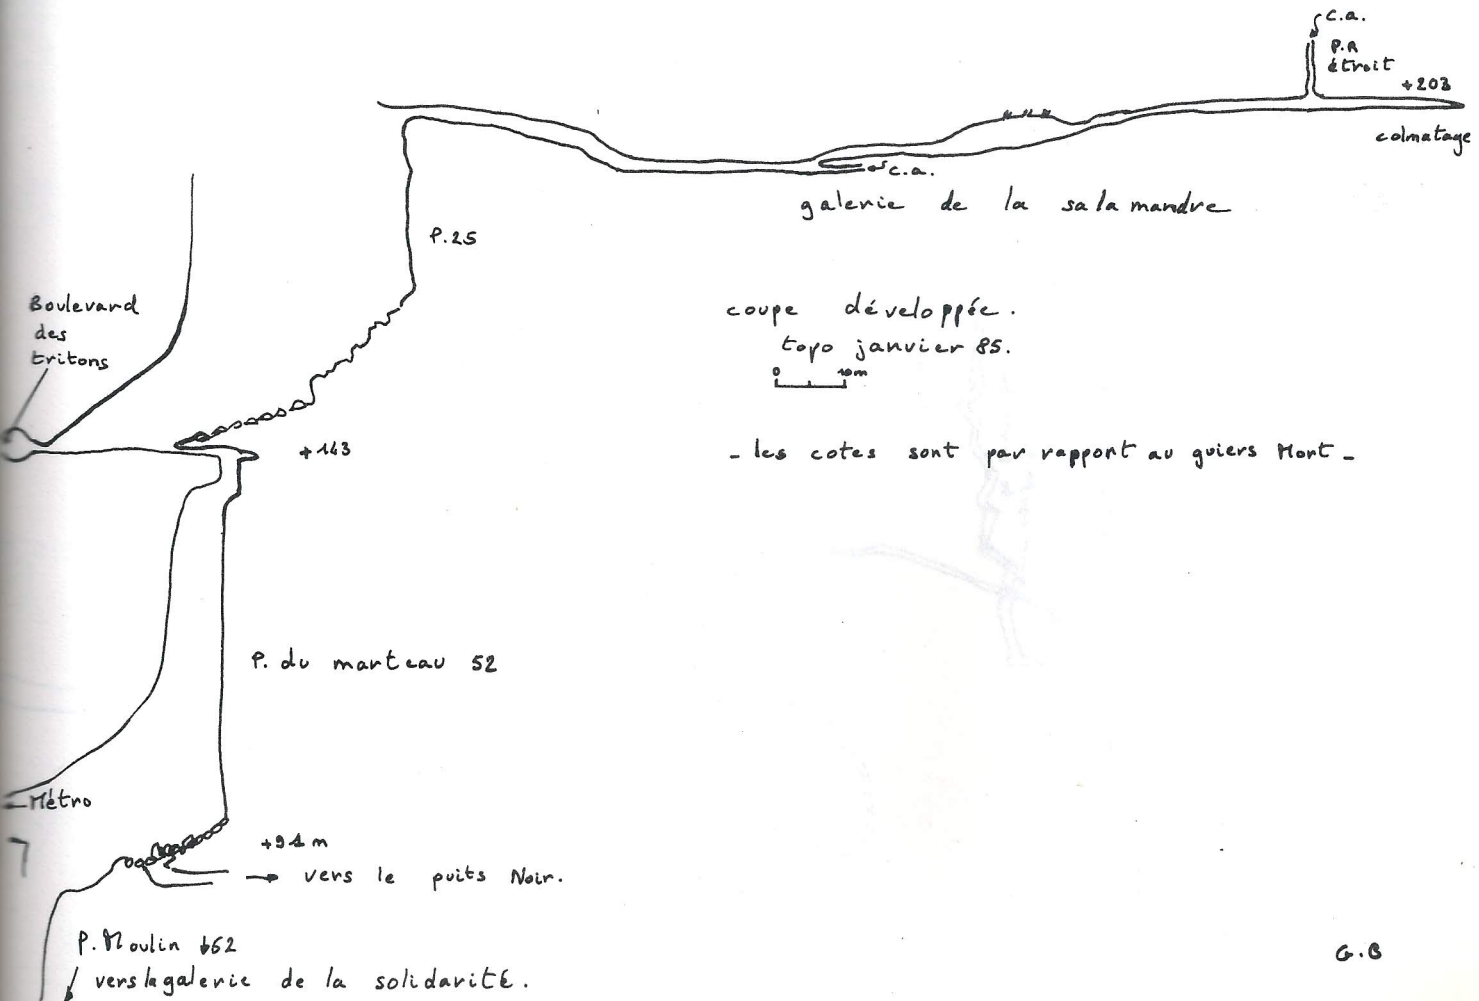 c.a.
P.R
étroit
+203
colmatage
c.a.
galerie de la salamandre
P.25
Boulevard
des
tritons
coupe développée.
topo janvier 85.
0 10m
+143
- les cotes sont par rapport au guiers Mort -
P. du marteau 52
Métro
+91 m
vers le puits Noir.
P. Moulin 62
vers la galerie de la solidarité.
G.B